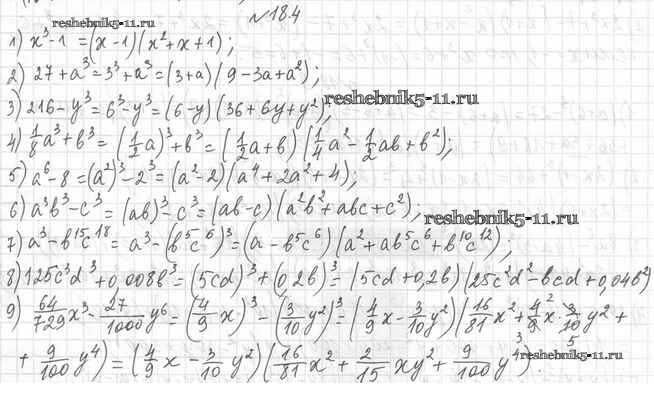 №18.4
reshebnik5-11.ru
1) x³-1 =(x-1)(x²+x+1);
2) 27+a³=3³+a³=(3+a)(9-3a+a²);
3) 216-y³=6³-y³=(6-y)(36+6y+y²),
reshebnik5-11.ru
4) 1/8a³+b³=(1/2a)³+b³=(1/2a+b)(1/4a²-1/2ab+b²);
5) a⁶-8=(a²)³-2³=(a²-2)(a⁴+2a²+4);
6) a³b³-c³=(ab)³-c³=(ab-c)(a²b²+abc+c²);
reshebnik5-11.ru
7) a³-b¹⁵c¹⁸=a³-(b⁵c⁶)³=(a-b⁵c⁶)(a²+ab⁵c⁶+b¹⁰c¹²);
8) 125c³d³+0,008b³=(5cd)³+(0,2b)³=(5cd+0,2b)(25c²d²-bcd+0,04b²)
9) 64/729x³-27/1000y⁶=(4/9x)³-(3/10y²)³=(4/9x-3/10y²)(16/81x²+4/9x·3/10y²+
+9/100y⁴)=(4/9x-3/10y²)(16/81x²+2/15xy²+9/100y⁴).
reshebnik5-11.ru